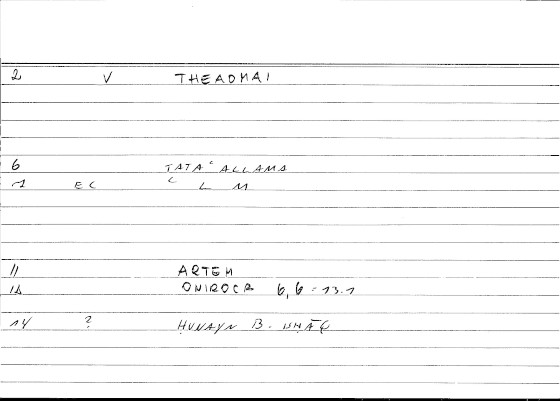 2 V THEADHAI
6 TATAʿALLAMA
1 EC ʿ L M
11 ARTEM
12 ONIROCR 6,6 = 13.1
14 ? ḤUNAYN B. ISḤĀQ